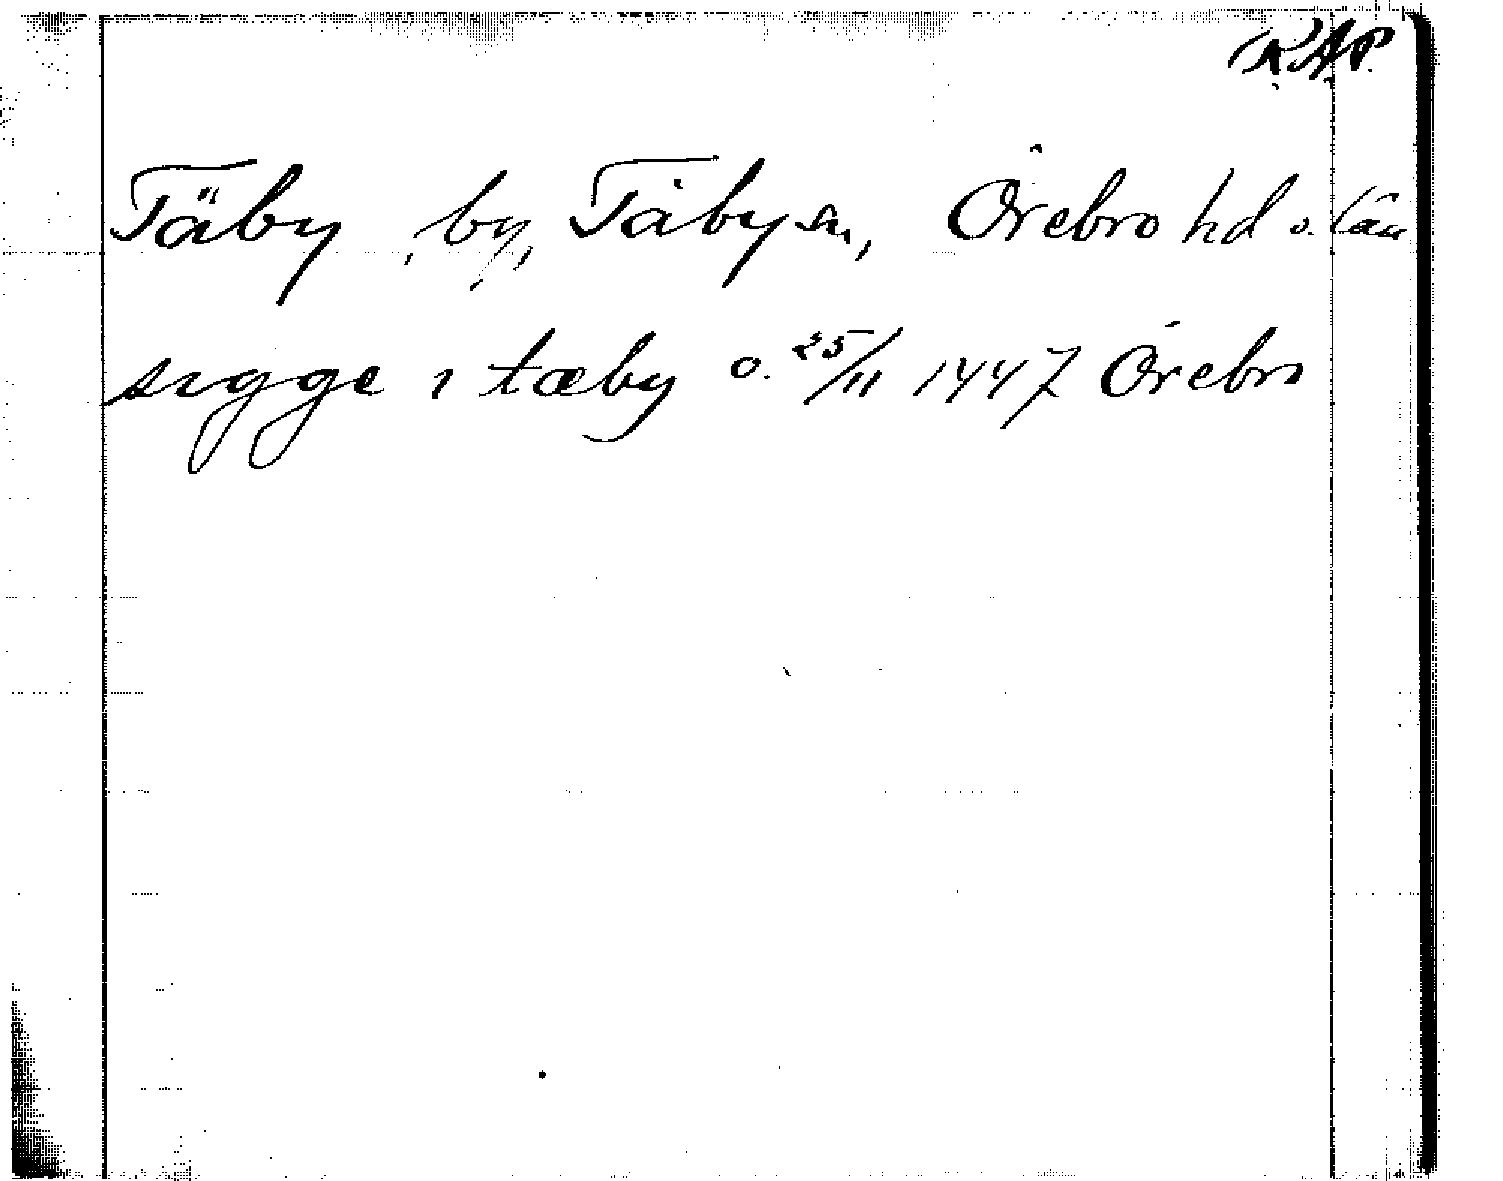 RAP.
Täby, by, Täby sn, Örebro hd o. län
sigge i tæby o. 25/11 1447 Örebro